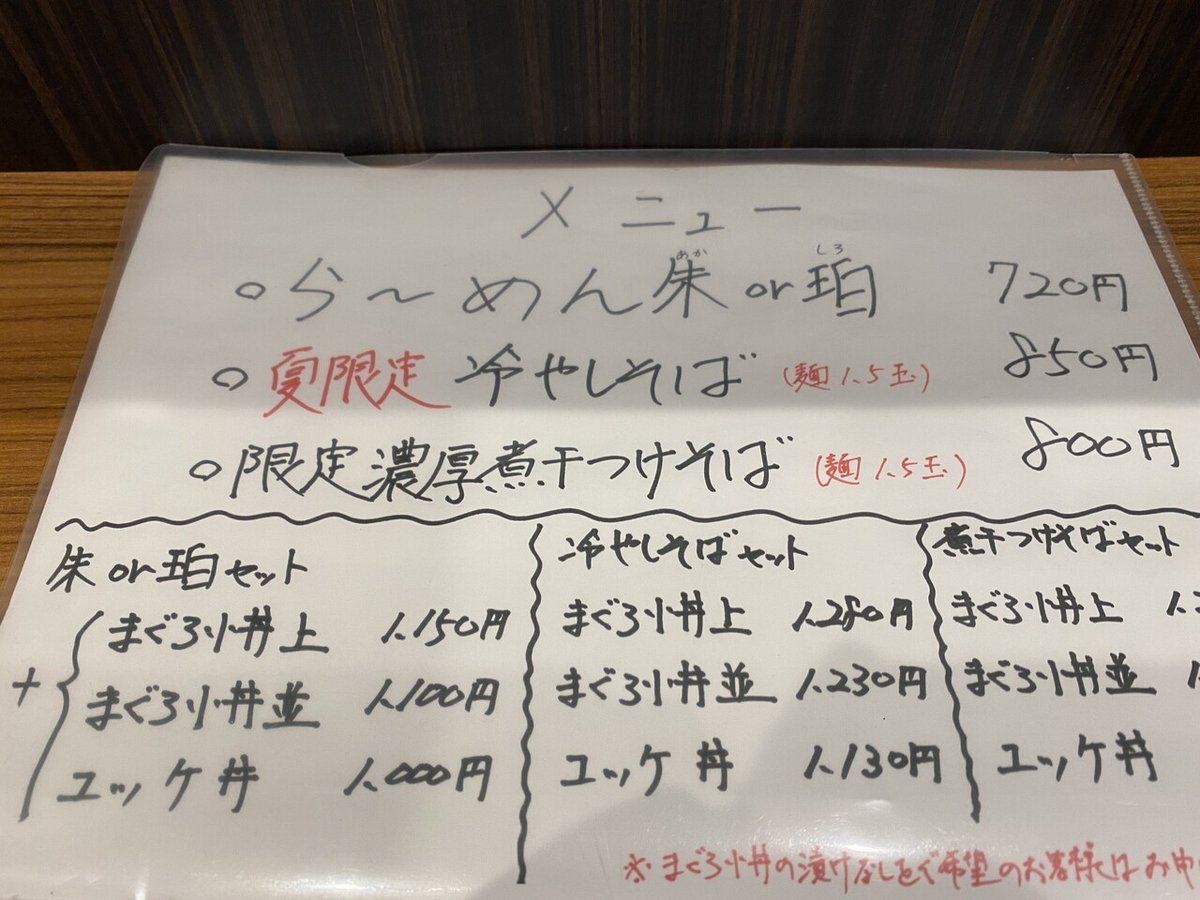 メニュー
○ら〜めん朱(あか)or珀(しろ) 720円
○夏限定 冷やしそば (麺1.5玉) 850円
○限定濃厚煮干つけそば (麺1.5玉) 800円
朱or珀セット
+ まぐろ小丼上 1,150円
まぐろ小丼並 1,100円
ユッケ丼 1,000円
冷やしそばセット
まぐろ小丼上 1,280円
まぐろ小丼並 1,230円
ユッケ丼 1,130円
煮干つけそばセット
まぐろ小丼上
まぐろ小丼並
ユッケ丼
※まぐろ小丼の漬けなしをご希望のお客様はお申